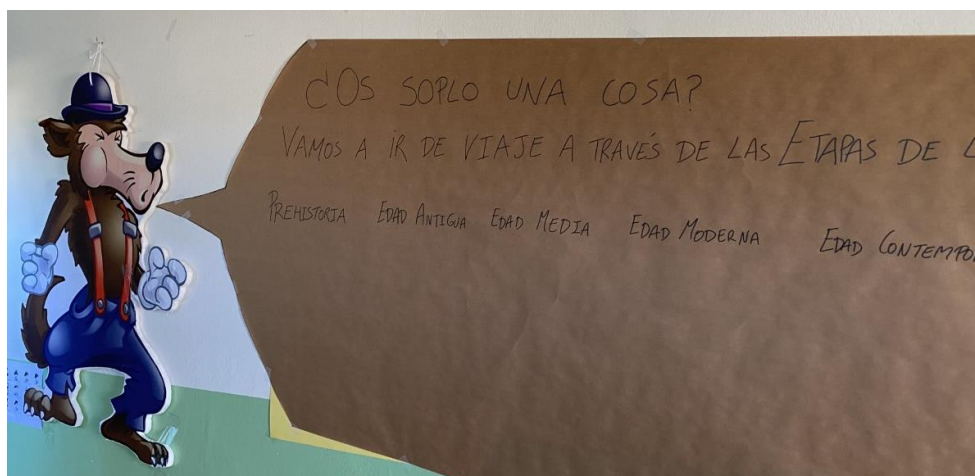 ¿OS SOPLO UNA COSA?
VAMOS A IR DE VIAJE A TRAVÉS DE LAS ETAPAS DE L
PREHISTORIA EDAD ANTIGUA EDAD MEDIA EDAD MODERNA EDAD CONTEMPO